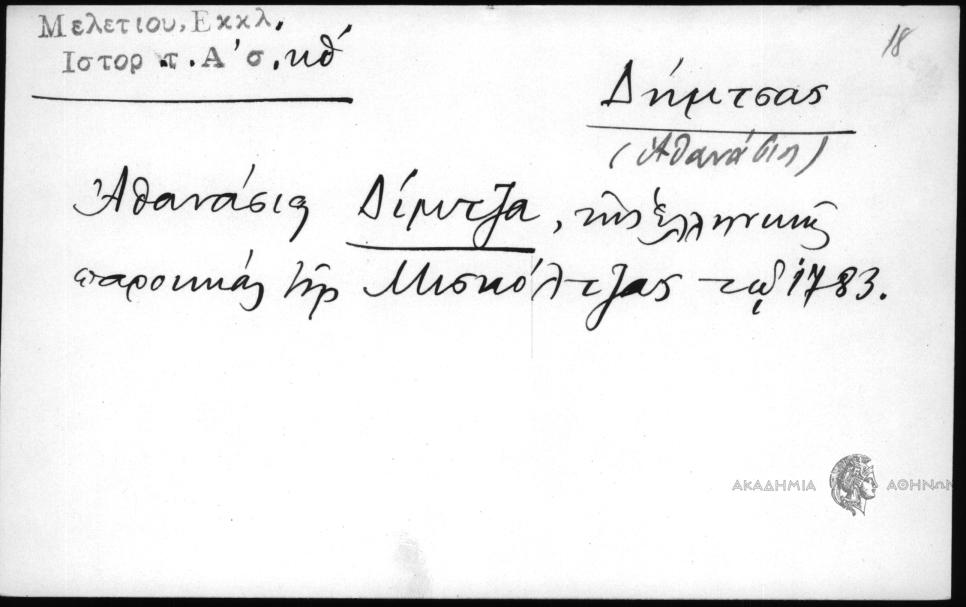 Μελετιου, Εκκλ.
Ιστορ. τ. Α' σ. κθ'
18
Δήμτσας
(Ἀθανάσιος)
Ἀθανάσιος Δίμτζα, τῆς ἑλληνικῆς
παροικίας τῆς Μισκόλτζας τῷ 1783.
ΑΚΑΔΗΜΙΑ ΑΘΗΝΩΝ